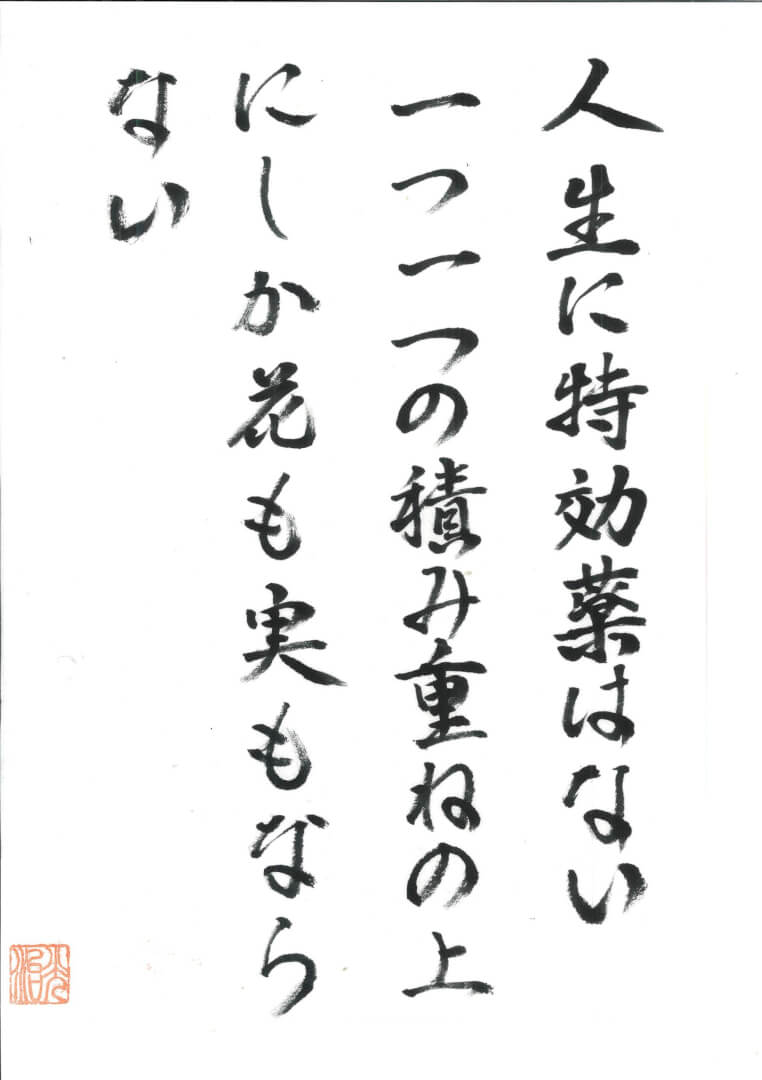 人生に特効薬はない
一つ一つの積み重ねの上
にしか花も実もなら
ない